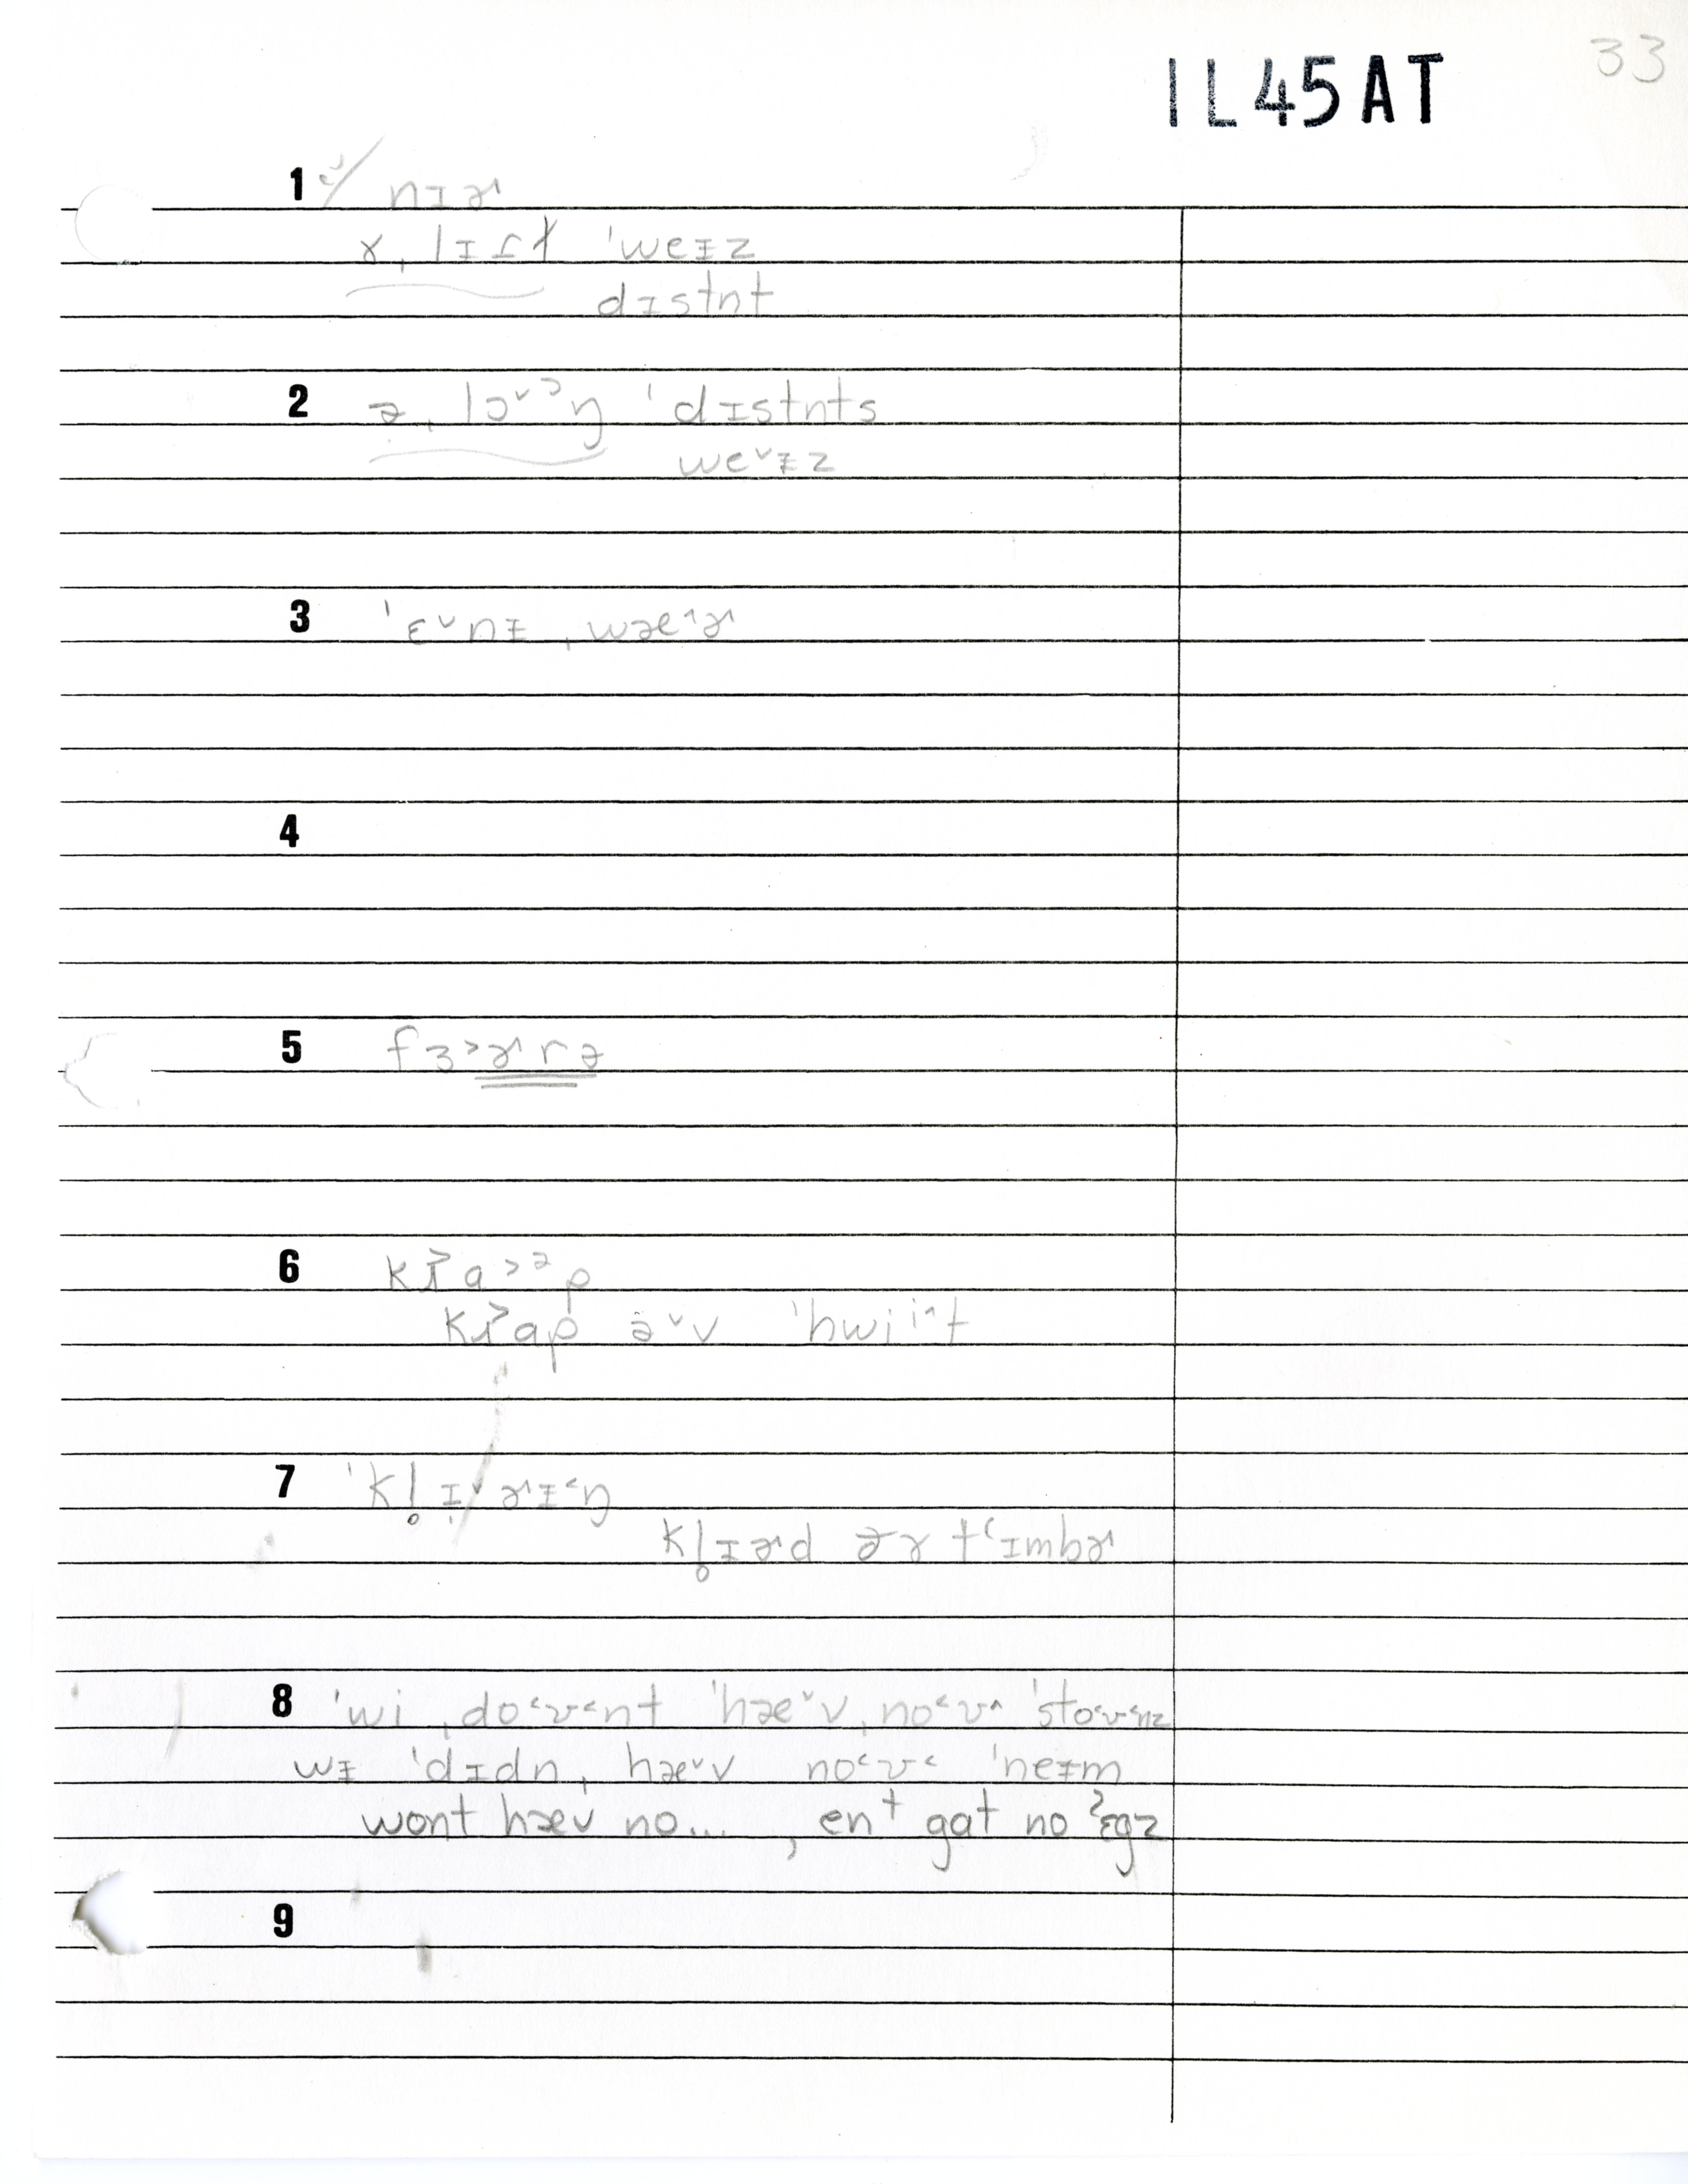 33
IL45AT
1 nɪɚ
ɤ ˌlɪɾɫ ˈweɪz
dɪstnt
2 ə ˌlɔ˅ɔŋ ˈdɪstnts
we˅ɪz
3 ˈɛ˅nɪ ˌwæ˄ɚ
4
5 fɜ˃ɚrə
6 kɹ̥a˃əp
kɹ̥ap ə˅v ˈhwii˄t
7 ˈkl̥ɪ˅ɚɪ˂ŋ
kl̥ɪɚd əɤ tʻɪmbɚ
8 ˈwi ˌdo˂ʊ˂nt ˈhæ˅v ˌno˂ʊ˄ ˈsto˂ʊ˂nz
wɪ ˈdɪdn ˌhæ˅v no˂ʊ˂ ˈneɪm
wont hæv no... , ent gat no ʔɛgz
9